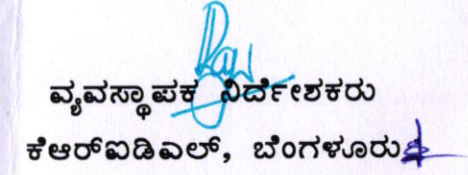 ವ್ಯವಸ್ಥಾಪಕ ನಿರ್ದೇಶಕರು
ಕೆಆರ್‌ಐಡಿಎಲ್, ಬೆಂಗಳೂರು